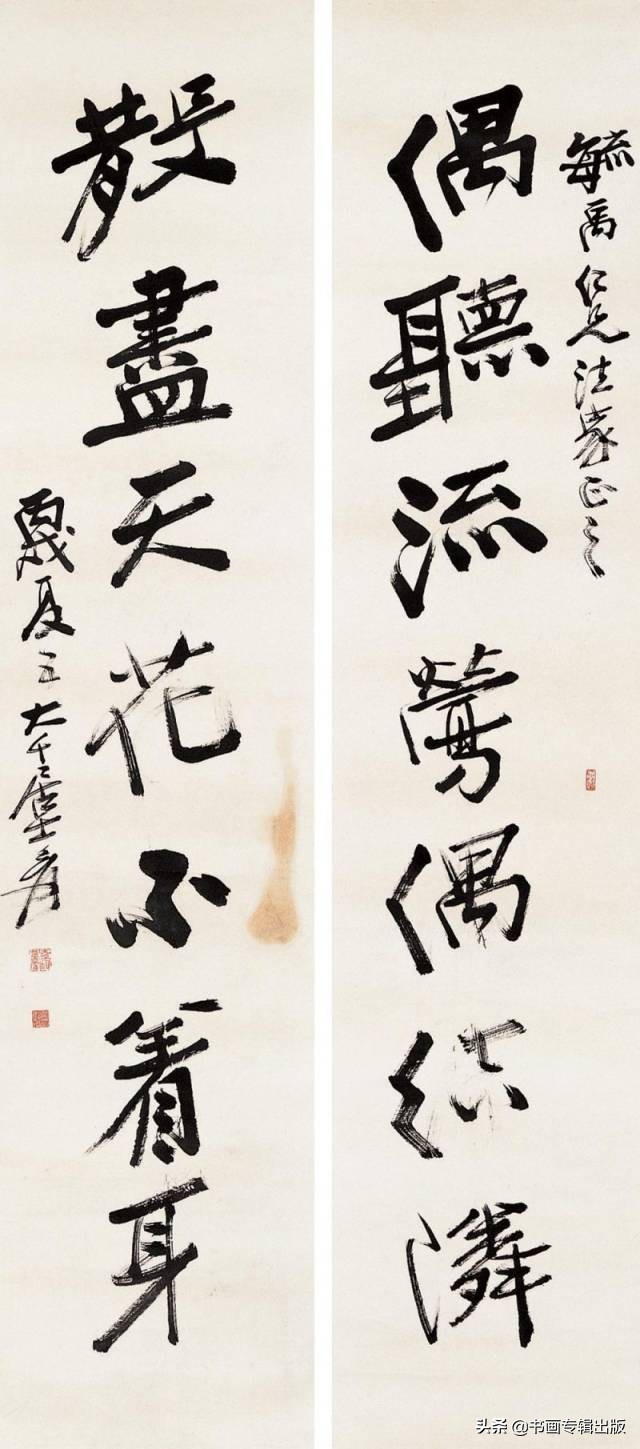 毓禹仁兄法家正之
偶聽流鶯偶結隣
散盡天花不着身
丙戌夏五大千居士爰
头条 @书画专辑出版